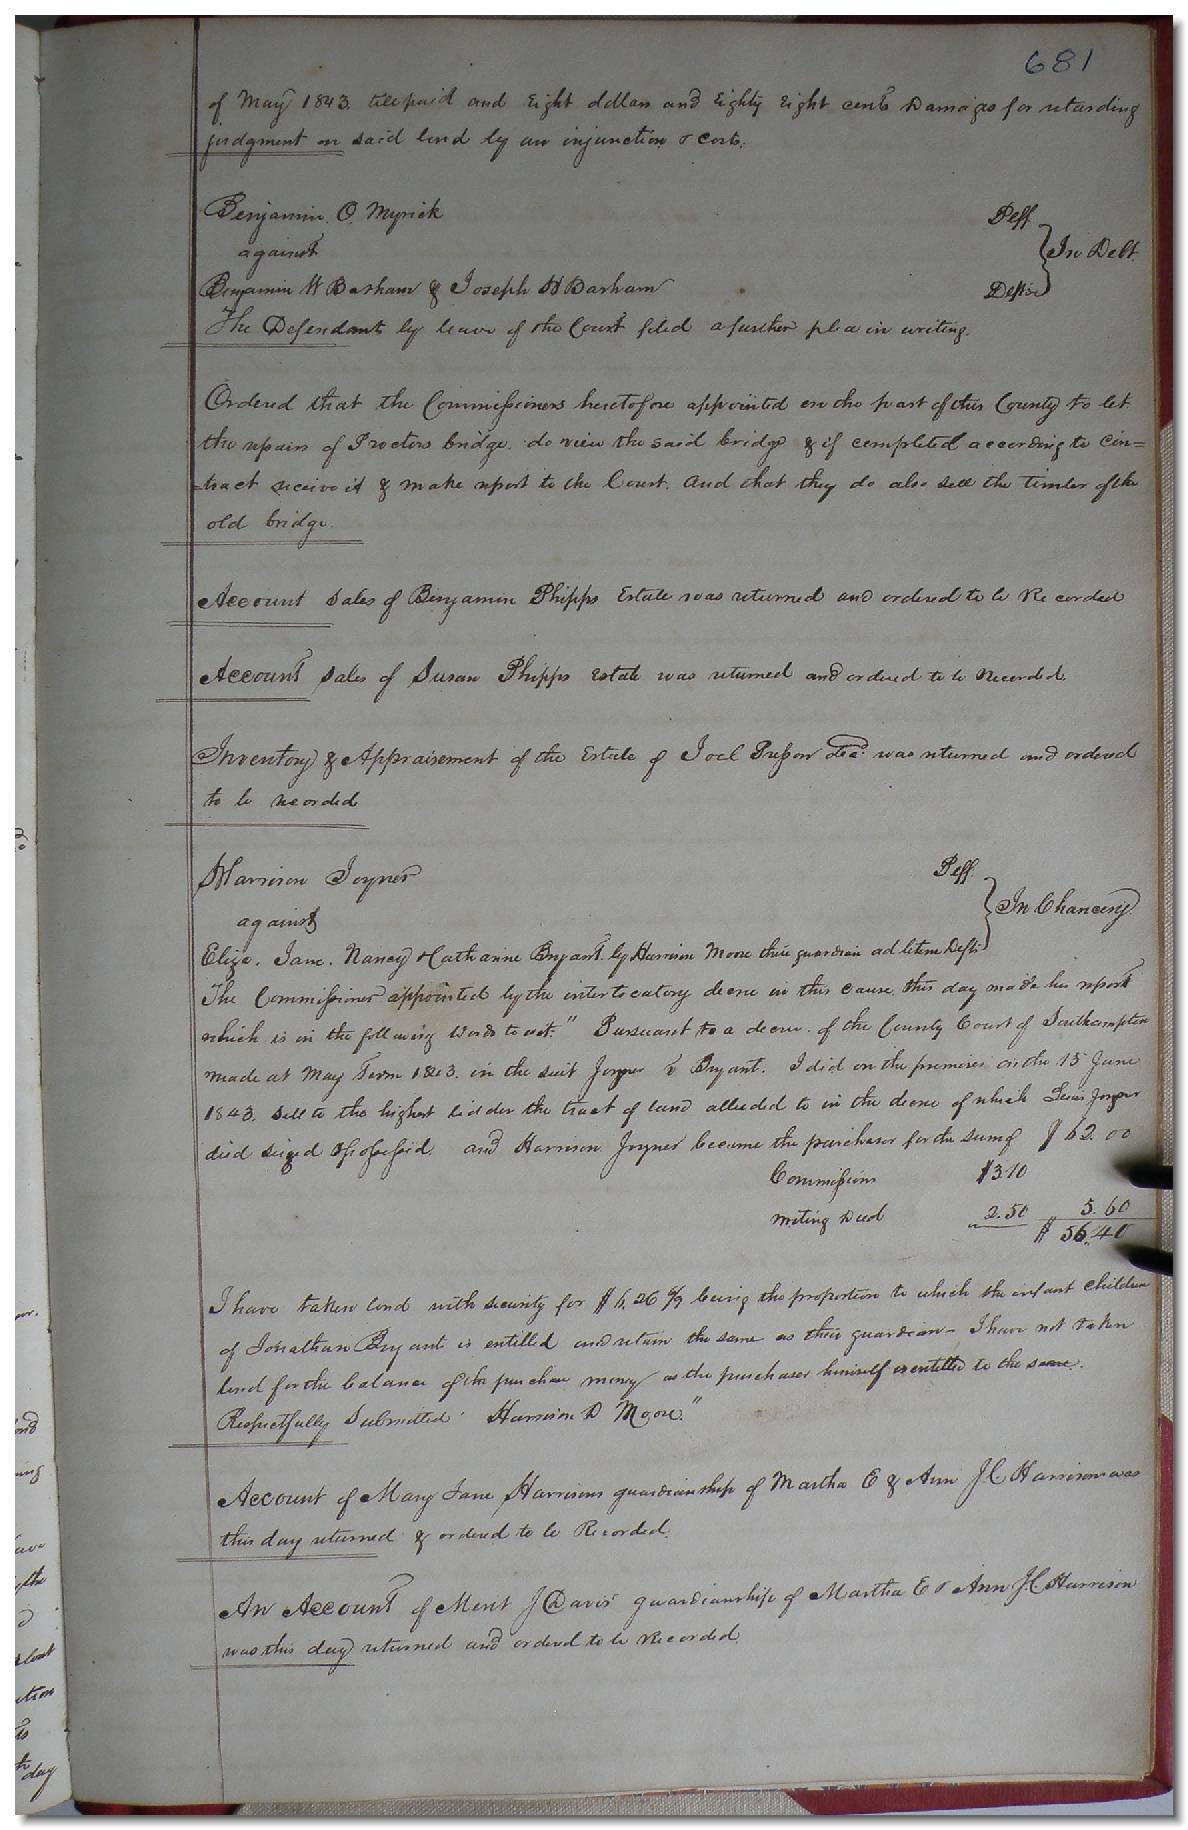 681
of May 1843 till paid and Eight dollars and Eighty Eight cents Damages for retarding
judgment on said bond by an injunction & costs.
Benjamin. O. Myrick Plff.
against In Debt.
Benjamin W Barham & Joseph H Barham Defts
The Defendants by leave of the Court filed a further plea in writing.
Ordered that the Commissioners heretofore appointed on the part of this County to let
the repairs of Proctors bridge. do view the said bridge & if completed according to con=
=tract receive it & make report to the Court. And that they do also sell the timber of the
old bridge.
Account Sales of Benjamin Phipps Estate was returned and ordered to be Recorded
Account Sales of Susan Phipps Estate was returned and ordered to be Recorded
Inventory & Appraisement of the Estate of Joel Presson decd. was returned and ordered
to be recorded
Harrison Joyner Plff.
against In Chancery
Eliza. Jane. Nancy & Catharine Bryant. by Harrison Moore their guardian ad litem Defts
The Commissioner appointed by the interlocutory decree in this cause. this day made his report
which is in the following words to wit. " Pursuant to a decree. of the County Court of Southampton
made at May Term 1843. in the suit Joyner v Bryant. I did on the premises on the 15 June
1843. sell to the highest bidder the tract of land alluded to in the decree of which Lewis Joyner
died seized & possessed and Harrison Joyner became the purchaser for the sum of $62.00
Commissions $3.10
writing Deed 2.50 5.60
$56.40
I have taken bond with security for $6,26 6/9 being the proportion to which the infant children
of Jonathan Bryant is entitled and retain the same as their guardian - I have not taken
bond for the balance of the purchase money as the purchaser himself is entitled to the same.
Respectfully Submitted. Harrison D Moore."
Account of Mary Jane Harrisons guardianship of Martha E & Ann J. C. Harrison was
this day returned & ordered to be Recorded.
An Account of Merit J Davis guardianship of Martha E & Ann J. C. Harrison
was this day returned and ordered to be Recorded.